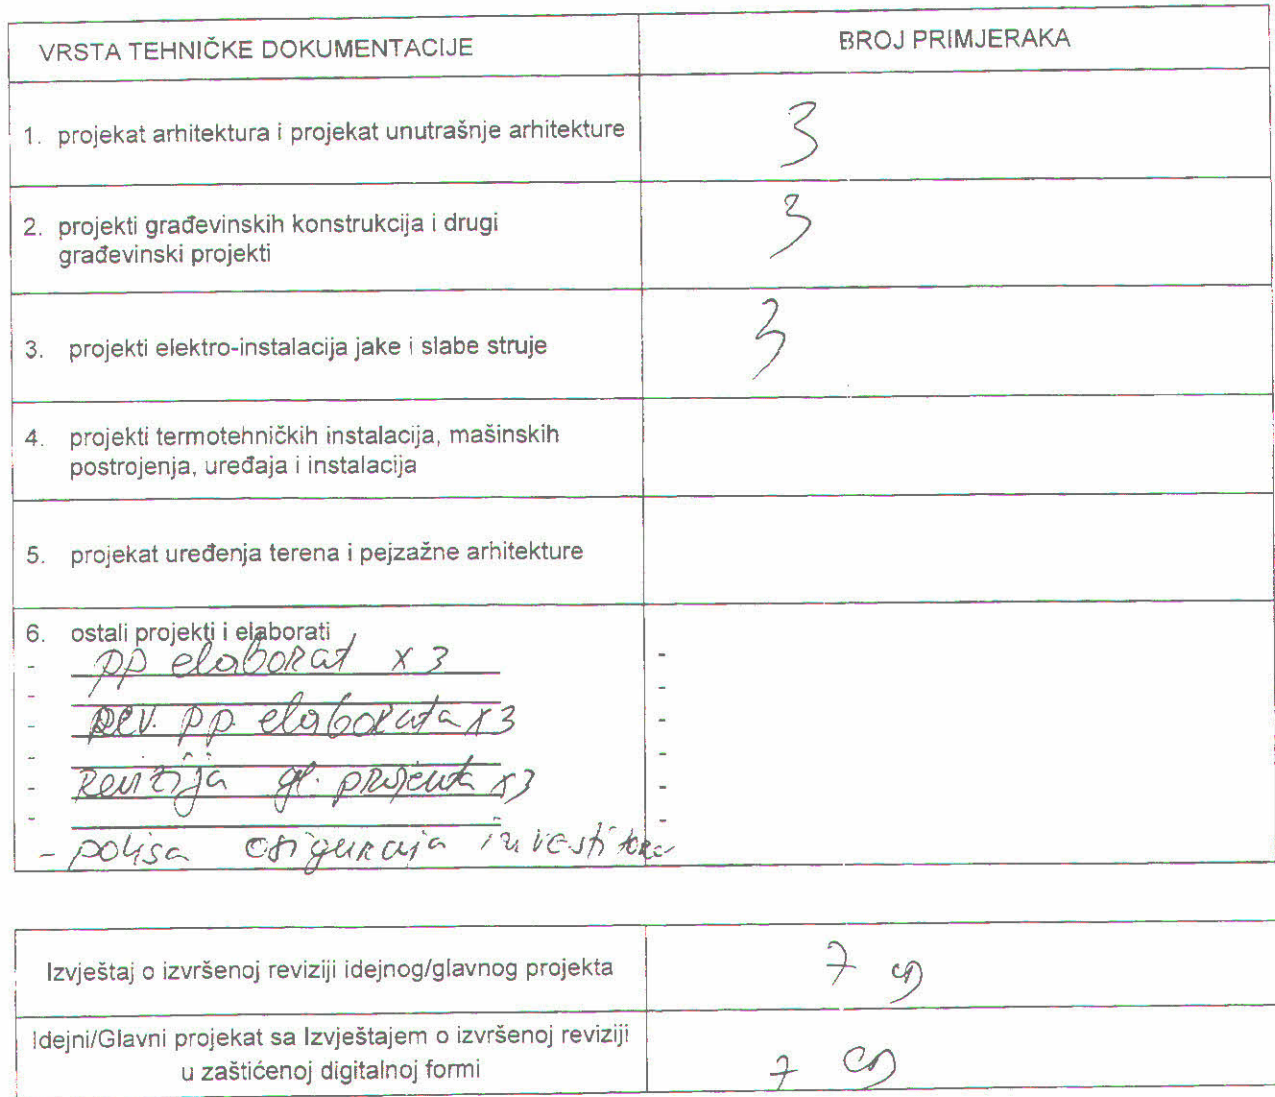 VRSTA TEHNIČKE DOKUMENTACIJE BROJ PRIMJERAKA
1. projekat arhitektura i projekat unutrašnje arhitekture 3
2. projekti građevinskih konstrukcija i drugi
građevinski projekti 3
3. projekti elektro-instalacija jake i slabe struje 3
4. projekti termotehničkih instalacija, mašinskih
postrojenja, uređaja i instalacija
5. projekat uređenja terena i pejzažne arhitekture
6. ostali projekti i elaborati
- pp elaborat x 3 -
- rev. pp. elaborata x3 -
- revizija gl. projekta x3 -
- polisa osiguraja investitora
Izvještaj o izvršenoj reviziji idejnog/glavnog projekta 7
Idejni/Glavni projekat sa Izvještajem o izvršenoj reviziji
u zaštićenoj digitalnoj formi 7